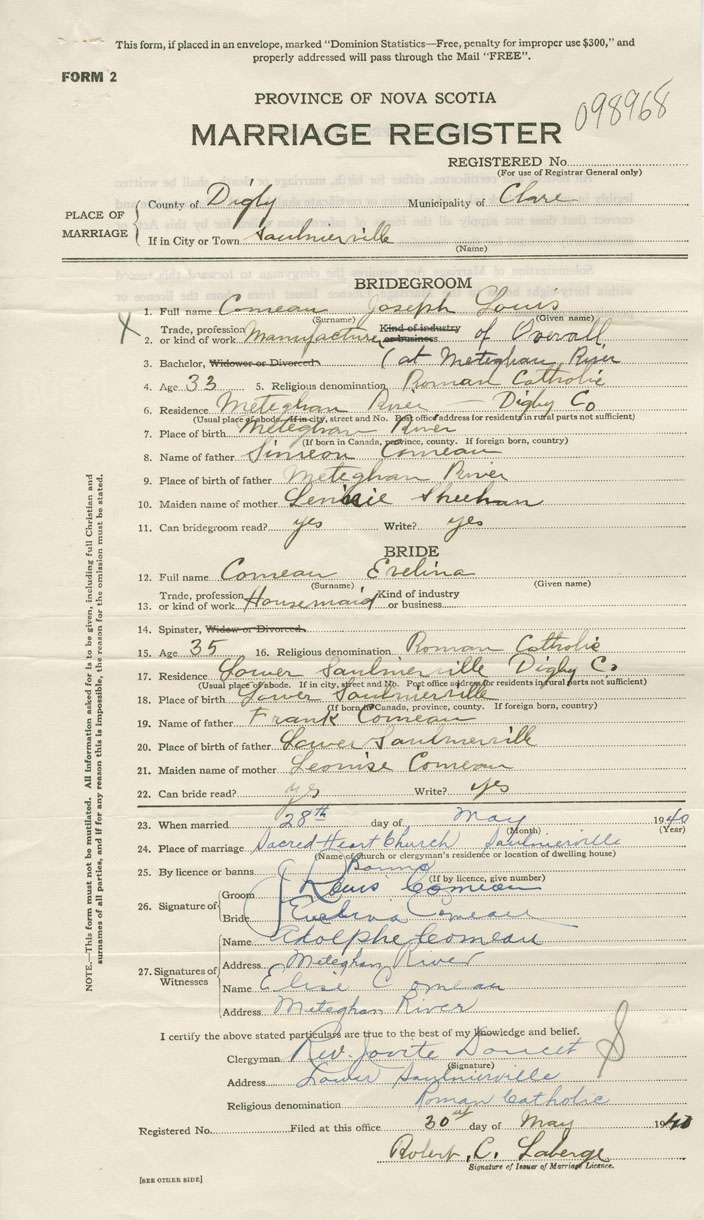 This form, if placed in an envelope, marked "Dominion Statistics—Free, penalty for improper use $300," and
properly addressed will pass through the Mail "FREE".
FORM 2
PROVINCE OF NOVA SCOTIA
098968
MARRIAGE REGISTER
REGISTERED No.
(For use of Registrar General only)
PLACE OF MARRIAGE
County of Digby Municipality of Clare
If in City or Town Saulnierville
(Name)
BRIDEGROOM
1. Full name Comeau Joseph Louis
(Surname) (Given name)
X
2. Trade, profession or kind of work Manufacturer Kind of industry or business of Overall
(at Meteghan River
3. Bachelor, Widower or Divorced
4. Age 33 5. Religious denomination Roman Catholic
6. Residence Meteghan River — Digby Co
(Usual place of abode. If in city, street and No. Post office address for residents in rural parts not sufficient)
7. Place of birth Meteghan River
(If born in Canada, province, county. If foreign born, country)
8. Name of father Simeon Comeau
9. Place of birth of father Meteghan River
10. Maiden name of mother Sheehan
11. Can bridegroom read? yes Write? yes
BRIDE
12. Full name Comeau Evelina
(Surname) (Given name)
13. Trade, profession or kind of work Housemaid Kind of industry or business
14. Spinster, Widow or Divorced
15. Age 35 16. Religious denomination Roman Catholic
17. Residence Lower Saulnierville Digby Co
(Usual place of abode. If in city, street and No. Post office address for residents in rural parts not sufficient)
18. Place of birth Lower Saulnierville
(If born in Canada, province, county. If foreign born, country)
19. Name of father Frank Comeau
20. Place of birth of father Lower Saulnierville
21. Maiden name of mother Leonise Comeau
22. Can bride read? yes Write? yes
23. When married 28th day of May 1940
(Month) (Year)
24. Place of marriage Sacred Heart Church Saulnierville
(Name of church or clergyman's residence or location of dwelling house)
25. By licence or banns Banns
(If by licence, give number)
26. Signature of
Groom Louis Comeau
Bride Evelina Comeau
27. Signatures of Witnesses
Name Adolphe Comeau
Address Meteghan River
Name Elise Comeau
Address Meteghan River
I certify the above stated particulars are true to the best of my knowledge and belief.
Clergyman Rev. Jovite Doucet
(Signature)
Address Lower Saulnierville
Religious denomination Roman Catholic
Registered No. Filed at this office 30 day of May 1940
Robert C. Laberge
Signature of Issuer of Marriage Licence.
[SEE OTHER SIDE]
NOTE.—This form must not be mutilated. All information asked for is to be given, including full Christian and
surnames of all parties, and if for any reason this is impossible, the reason for the omission must be stated.